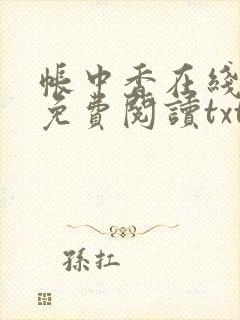 帳中香在綫
免費閱讀txt
孫扛